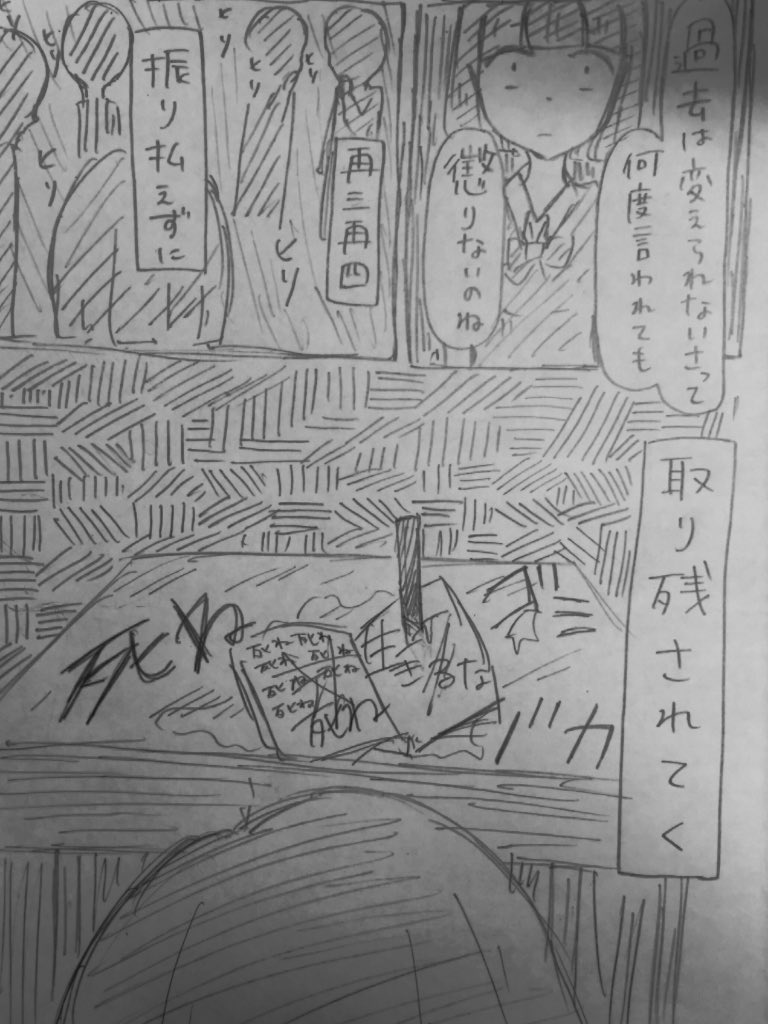 過去は変えられないさって
何度言われても
懲りないのね
再三再四
振り払えずに
とり
とり
とり
とり
とり
とり
取り残されてく
死ね
死ね
死ね
死ね
死ね
死ね
死ね
死ね
死ね
生きるな
バカ